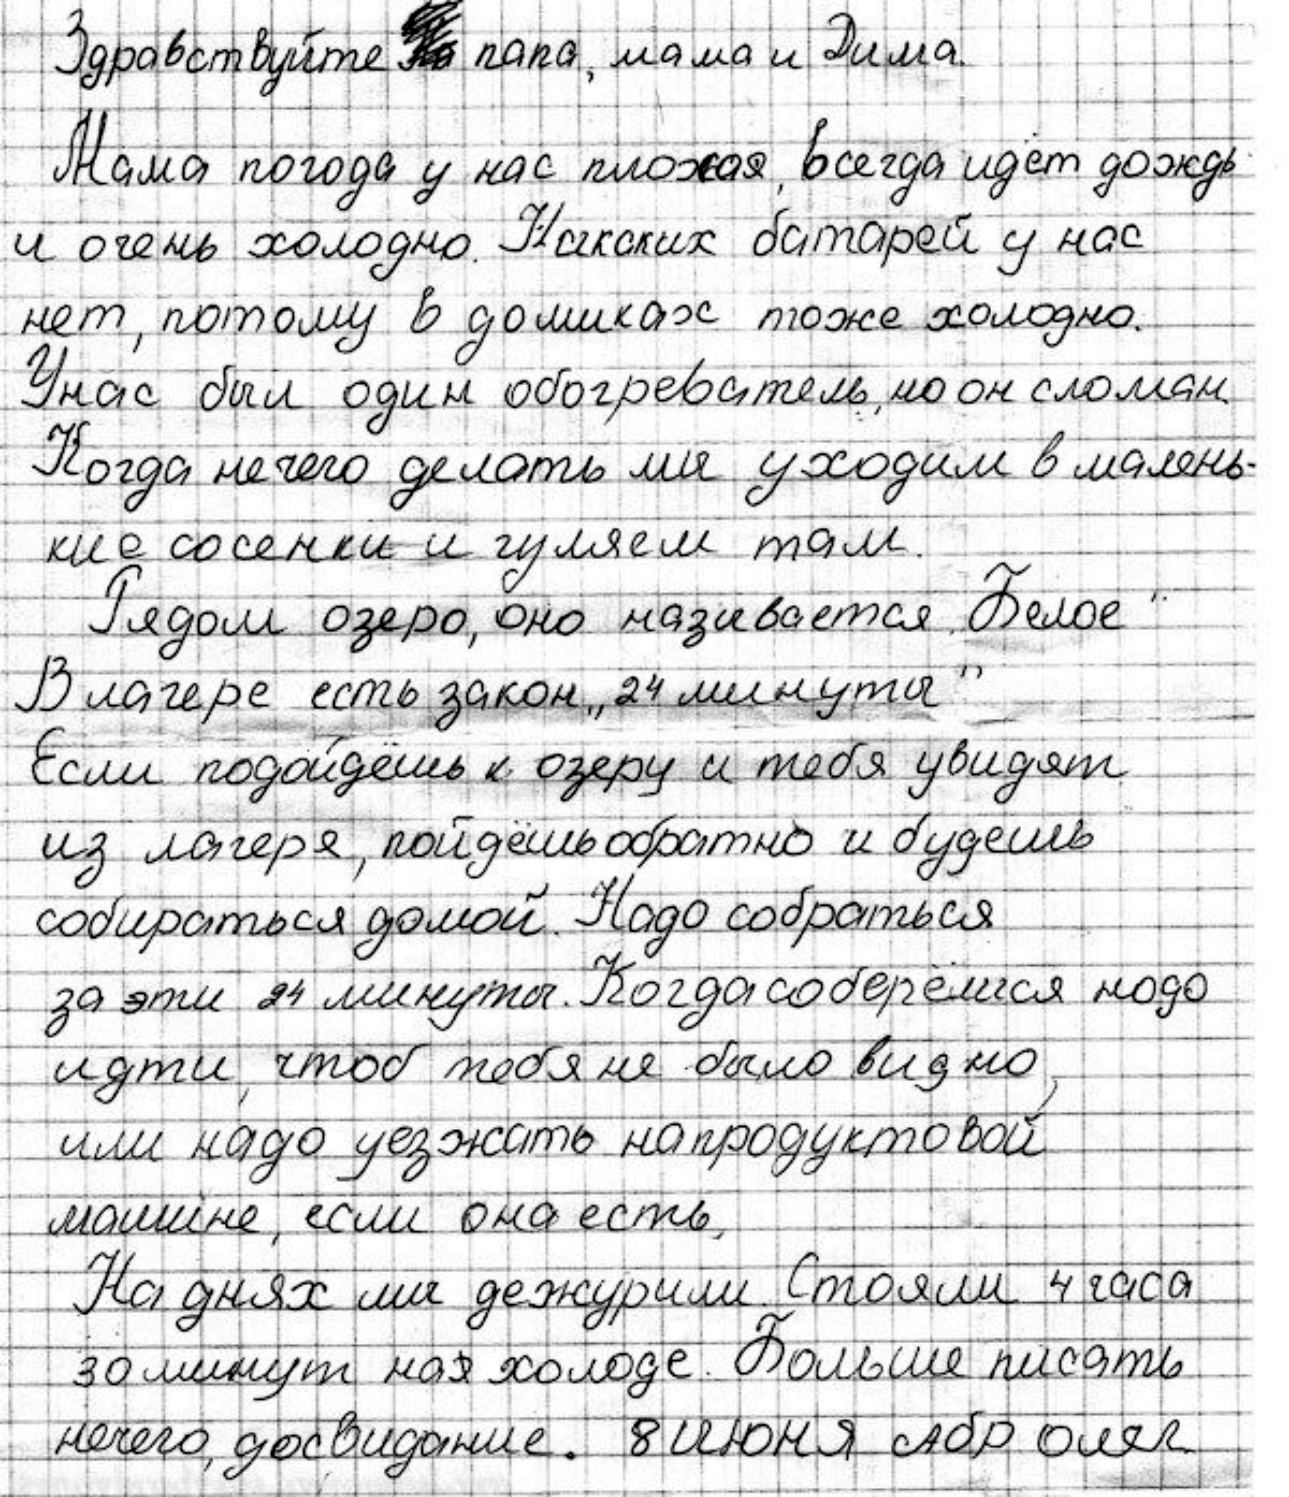 Здравствуйте папа, мама и Дима.
Мама погода у нас плохая, всегда идёт дождь
и очень холодно. Никаких батарей у нас
нет, потому в домиках тоже холодно.
Унас был один обогреватель, но он сломан.
Когда нечего делать мы уходим в малень-
кие сосенки и гуляем там.
Рядом озеро, оно називается „Белое"
В лагере есть закон „24 минуты"
Если подойдёшь к озеру и тебя увидят
из лагеря, пойдёшь обратно и будешь
собираться домой. Надо собраться
за эти 24 минуты. Когда соберёшся надо
идти, чтоб тебя не было видно,
или надо уезжать на продуктовой
машине, если она есть,
На днях мы дежурили. Стояли 4 часа
30 минут на холоде. Больше писать
нечего, досвидание. 8 июня